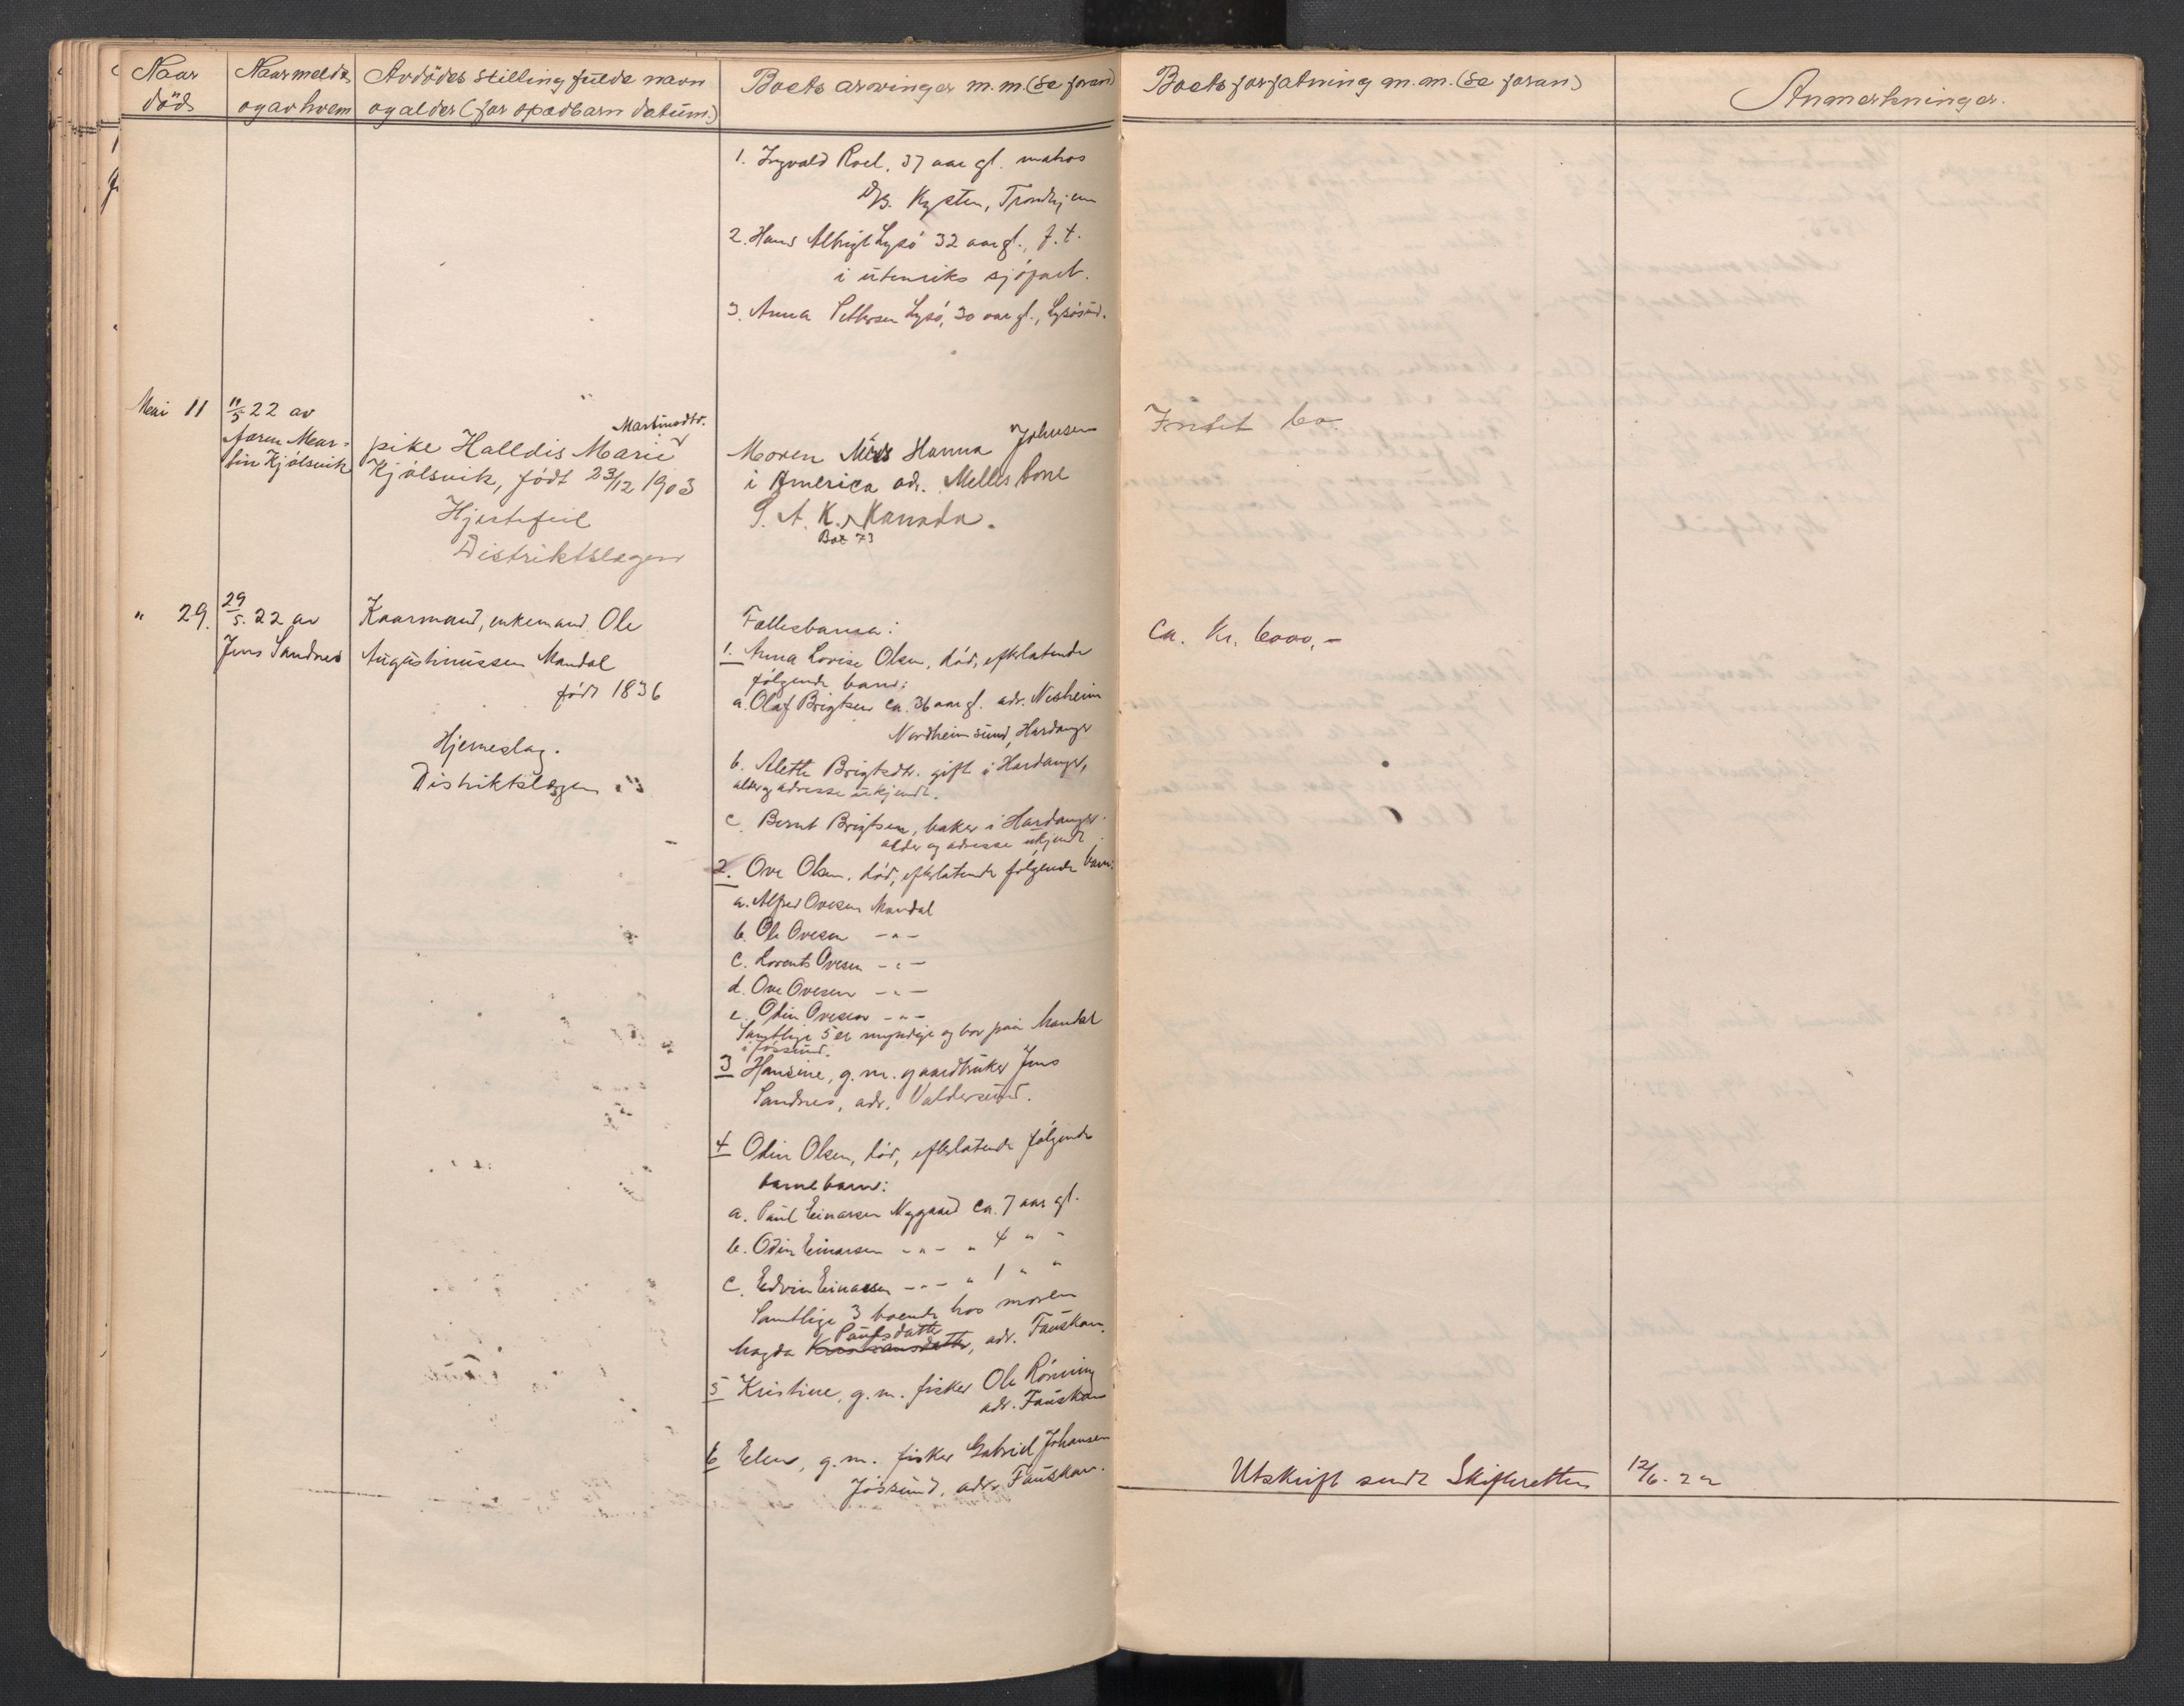 Naar
död
Naar meldt
og av hvem
Avdödes stilling fulde navn
og alder (for spædbarn datum.)
Boets arvinger m. m. (Se foran)
Boets forfatning m. m. (Se foran)
Anmerkninger.
1. Ingvald Roel, 37 aar gl. matros
D/S. Kysten, Trondhjem
2. Hans Albrigt Lysö 32 aar gl., f. t.
i utenriks sjöfart.
3. Anna Pettersen Lysö, 30 aar gl., Lysösund.
Mai 11
11/5 22 av
faren Mar-
tin Kjölsvik
Martinsdtr.
pike Halldis Marie
Kjölsvik, födt 23/12 1903
Hjertefeil
Distriktslægen
Moren Mrs Hanna Johnsen
i America adr. Melles Bone
S. A. K. Kanada.
Box 73
Intet bo.
" 29.
29/5. 22 av
Jens Sandnes
Kaarmand, enkemand Ole
Augustinussen Mandal
födt 1836
Hjerneslag.
Distriktslægen
Fællesbarn:
1. Anna Lovise Olsen, död, efterlatende
følgende barn:
a. Olaf Brigtsen ca. 36 aar gl. adr. Nesheim
Nordheimsund, Hardanger
b. Alette Brigtsdtr. gift i Hardanger,
alder og adresse ukjendt.
c. Bernt Brigtsen, baker i Hardanger
alder og adresse ukjendt
2. Ove Olsen, död, efterlatende følgende barn:
a. Alfred Ovesen Mandal
b. Ole Ovesen -"-
c. Lorents Ovesen -"-
d. Ove Ovesen -"-
e. Odin Ovesen -"-
Samtlige 5 er myndige og bor paa Mandal
i Jössund.
3 Hansine, g. m. gaardbruker Jens
Sandnes, adr. Valdersund.
4 Odin Olsen, död, efterlatende følgende
barnebarn:
a. Paul Einarsen Nygaard ca. 7 aar gl.
b. Odin Einarsen -"- " 4 " "
c. Edvin Einarsen -"- " 1 " "
Samtlige 3 boende hos moren
Paulsdatter
Magda Kristiansdatter, adr. Fauskan.
5 Kristine, g. m. fisker Ole Rönning
adr. Fauskan
6 Elen, g. m. fisker Gabriel Johansen
Jössund, adr. Fauskan.
Ca. Kr. 6000,-
Utskrift sendt Skifteretten 12/6. 22